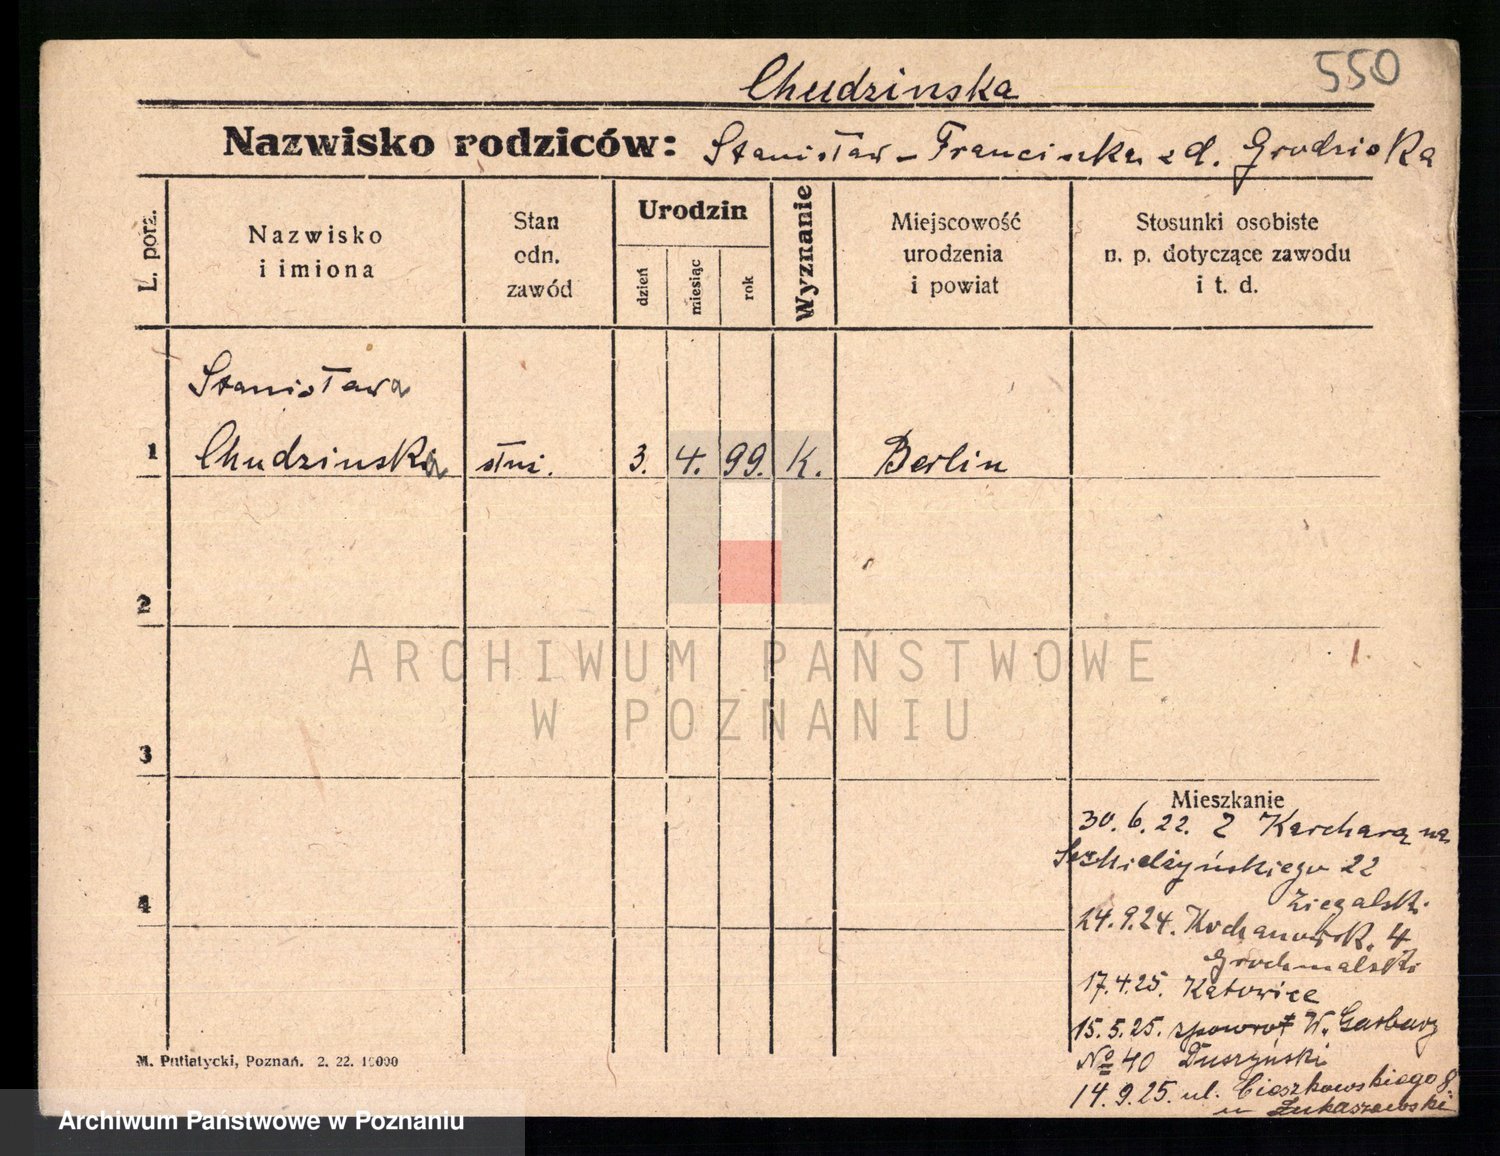 550
Chudzinska
Nazwisko rodziców: Stanisław – Francizka z d. Grodziska
L. porz.
Nazwisko
i imiona
Stan
odn.
zawód
Urodzin
dzień
miesiąc
rok
Wyznanie
Miejscowość
urodzenia
i powiat
Stosunki osobiste
n. p. dotyczące zawodu
i t. d.
Stanisława
1 Chudzinska służ. 3. 4. 99. K. Berlin
2
ARCHIWUM PAŃSTWOWE
W POZNANIU
3
Mieszkanie
30. 6. 22. Z na
22
4
14.9.24. Kochanowsk. 4
Grochmalski
17.4.25. Katowice
15.5.25. spowrot W. Garbary
№ 40 Duszyński
14.9.25. ul. Cieszkowskiego 8
u Łukaszewski
M. Putiatycki, Poznań. 2. 22. 10000
Archiwum Państwowe w Poznaniu